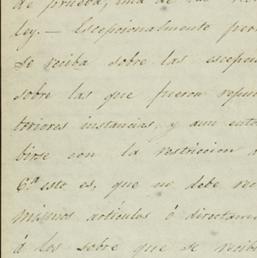 de prueba, una de las
ley. — Escepcionalmente
se reciba sobre las
sobre las que fueron
teriores instancias, y aun
birse con la restriccion
6.ª esto es, que no debe
mismos artículos ó
á los sobre que se